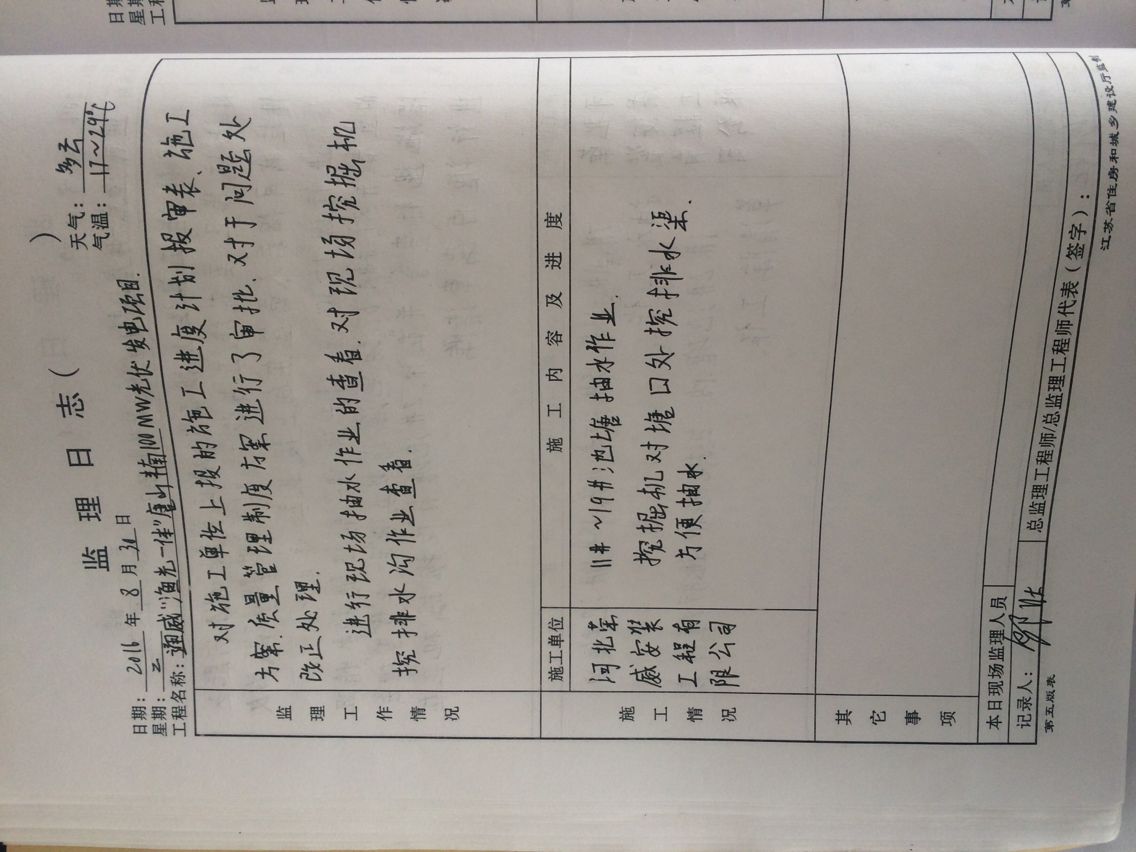 监 理 日 志 ( )
日期: 2016 年 8 月 31 日 天气: 多云
星期: 三 气温: 17~29℃
工程名称: 通威"渔光一体"唐山丰南100MW光伏发电项目.
监理工作情况
对施工单位上报的施工进度计划报审表、施工
方案.质量管理制度方案进行了审批.对于问题处
改正处理.
进行现场抽水作业的查看.对现场挖掘机
挖排水沟作业查看.
施工情况
施工单位 施 工 内 容 及 进 度
河北荣
威安装
工程有
限公司
11# ~19#池塘抽水作业.
挖掘机对塘口处挖排水渠.
方便抽水.
其它事项
本日现场监理人员
记录人: 总监理工程师/总监理工程师代表(签字):
第五版表 江苏省住房和城乡建设厅监制